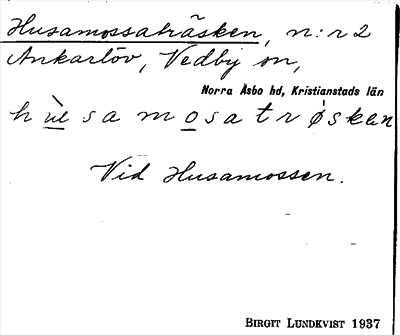 Husamossaträsken, n:r 2
Ankarlöv, Vedby sn,
Norra Åsbo hd, Kristianstads län
h u̇̀ s a m o s a t r ø s k e n
Vid Husamossen.
BIRGIT LUNDKVIST 1937